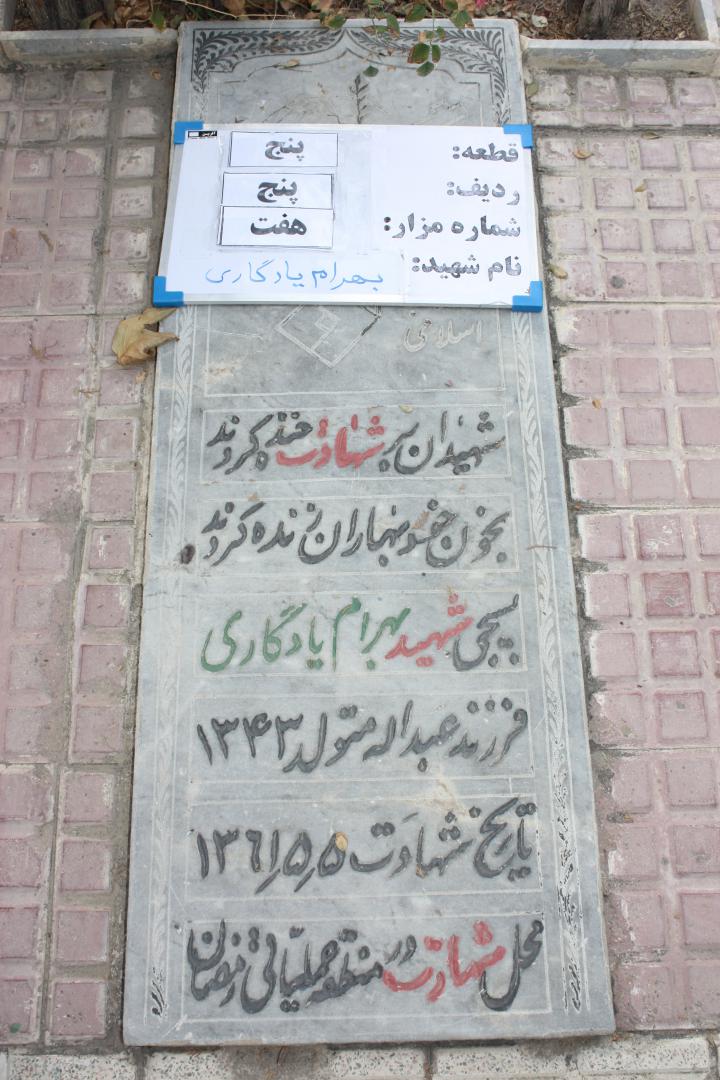 قطعه: پنج
ردیف: پنج
شماره مزار: هفت
نام شهید: بهرام یادگاری
اسلامی
شهیدان بر شهادت خنده کردند
بخون خود بهاران زنده کردند
بسیجی شهید بهرام یادگاری
فرزند عبداله متولد ۱۳۴۳
تاریخ شهادت ۱۳۶۱٫۵٫۵
محل شهادت در منطقه عملیاتی رمضان